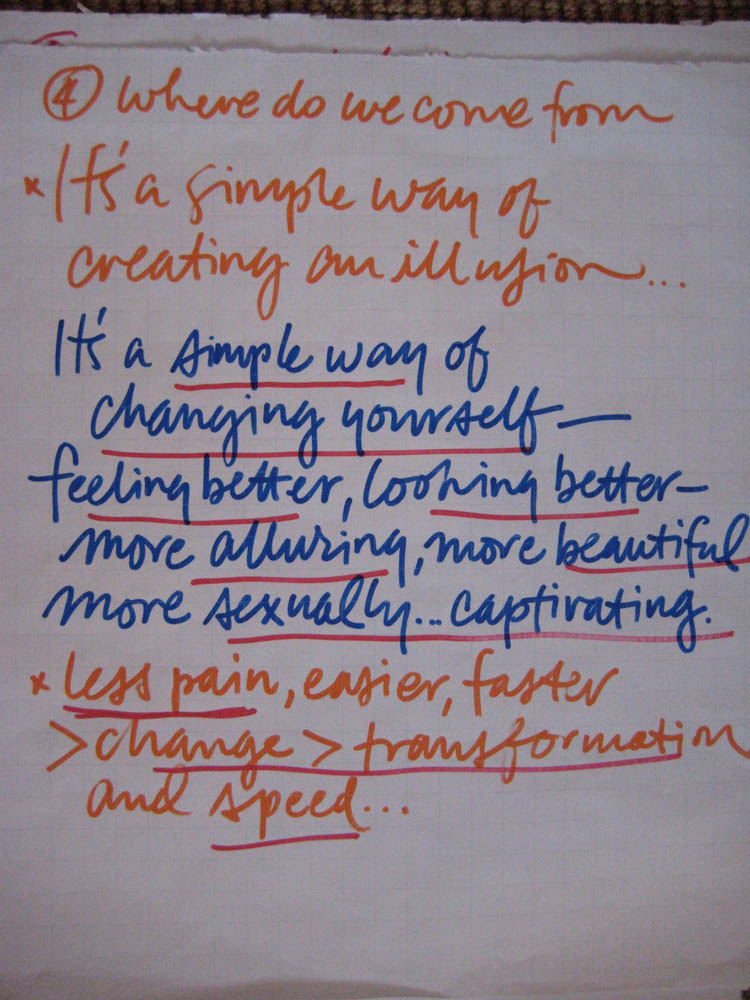 ④ where do we come from
* It's a simple way of
creating an illusion...
It's a simple way of
changing yourself—
feeling better, looking better—
more alluring, more beautiful
more sexually...captivating.
* less pain, easier, faster
> change > transformation
and speed...